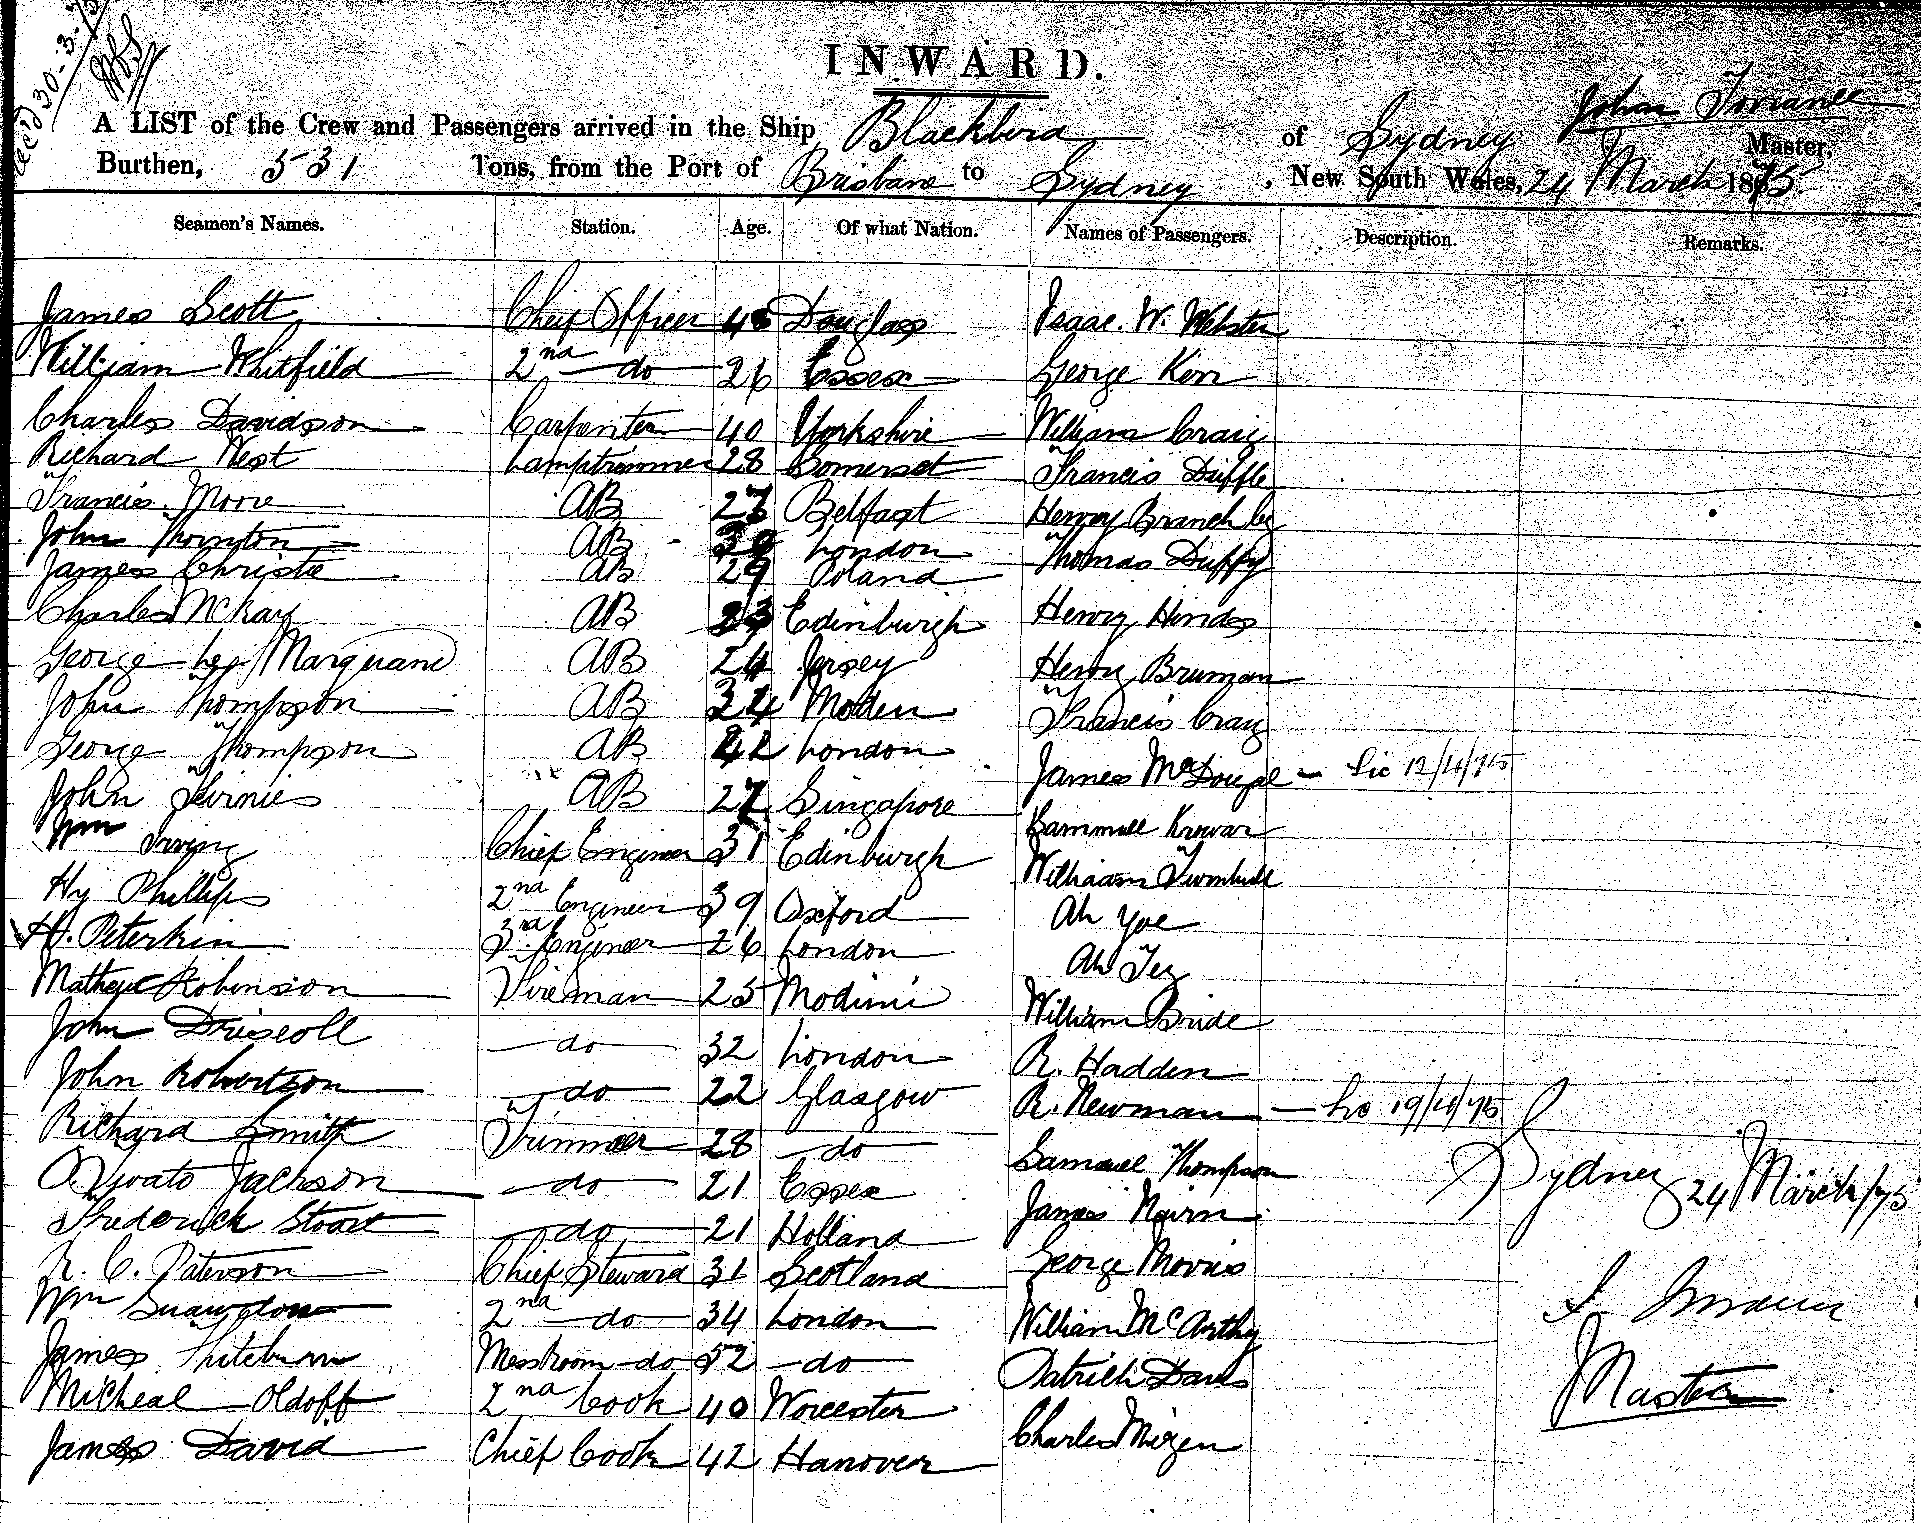 Recd 30-3-75
INWARD.
John Torrance
A LIST of the Crew and Passengers arrived in the Ship Blackbird of Sydney Master,
Burthen, 531 Tons, from the Port of Brisbane to Sydney, New South Wales, 24 March 1875.
Seamen's Names. Station. Age. Of what Nation. Names of Passengers. Description. Remarks.
James Scott Chief Officer 45 Douglass Isaac. W. Webster
William Whitfield 2nd do 26 Essex George Kerr
Charles Davidson Carpenter 40 Yorkshire William Craig
Richard West Lamptrimmer 28 Somerset Francis Duffle
Francis Moore AB 27 Belfast Henry
John Thornton AB London Thomas Duffy
James Christe AB 29 Poland
Charles McKay AB 23 Edinburgh Henry Hinds
George Marquand AB 24 Jersey Henry Bruman
John Thompson AB 34 Francis Craig
George Thompson AB 42 London
John AB 27 Singapore James McDougle - Lic 12/4/75
Wm Irving Chief Engineer 31 Edinburgh
Hy Phillips 2nd Engineer 39 Oxford William Turnbull
H. Peterkin 3rd Engineer 26 London Ah Yoe
Ah
Mathew Robinson Fireman 25 William Bride
John Driscoll do 32 London R. Hadden
John Robertson do 22 Glasgow R. Newman - Lic 19/4/75
Richard Smith Trimmer 28 do Samuel Thompson
Jackson do 21 Essex James Nairn
Sydney 24 March/75
Frederick do 21 Holland George Morris
R. C. Paterson Chief Steward 31 Scotland
Wm 2nd do 34 London William McCarthy
James Messroom do 52 do Patrick Davis
Micheal Oldoff 2nd Cook 40 Worcester
Master
James David Chief Cook 42 Hanover Charles Mizen